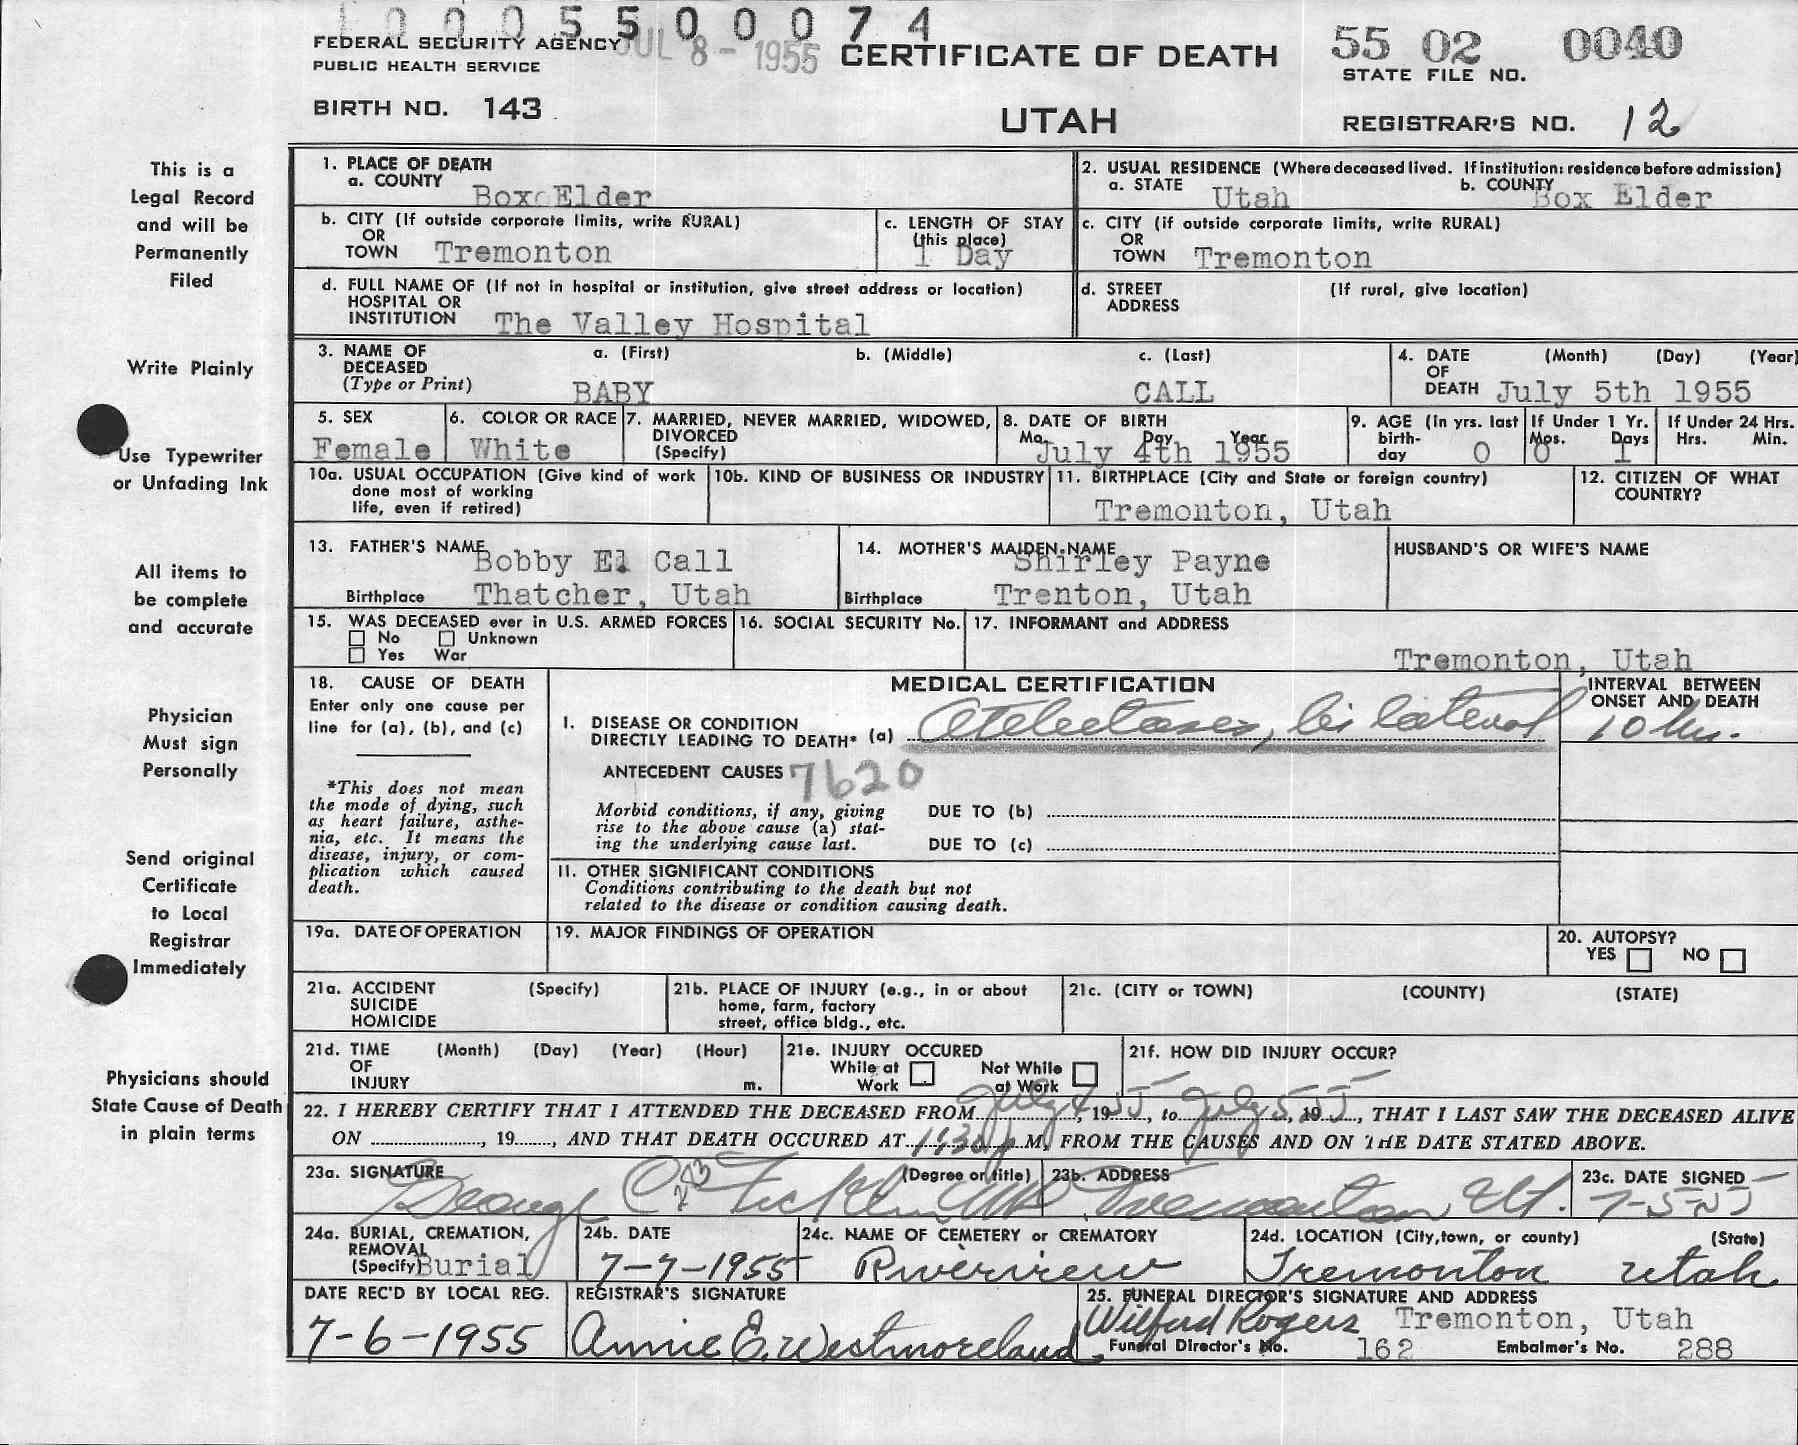 10005500074
FEDERAL SECURITY AGENCY JUL 8 - 1955 CERTIFICATE OF DEATH 55 02 0040
PUBLIC HEALTH SERVICE STATE FILE NO.
BIRTH NO. 143 UTAH REGISTRAR'S NO. 12
This is a
Legal Record
and will be
Permanently
Filed
Write Plainly
Use Typewriter
or Unfading Ink
All items to
be complete
and accurate
Physician
Must sign
Personally
Send original
Certificate
to Local
Registrar
Immediately
Physicians should
State Cause of Death
in plain terms
1. PLACE OF DEATH
a. COUNTY Box Elder
2. USUAL RESIDENCE (Where deceased lived. If institution: residence before admission)
a. STATE Utah b. COUNTY Box Elder
b. CITY (If outside corporate limits, write RURAL)
OR
TOWN Tremonton
c. LENGTH OF STAY
(this place)
1 Day
c. CITY (if outside corporate limits, write RURAL)
OR
TOWN Tremonton
d. FULL NAME OF (If not in hospital or institution, give street address or location)
HOSPITAL OR
INSTITUTION The Valley Hospital
d. STREET (If rural, give location)
ADDRESS
3. NAME OF a. (First) b. (Middle) c. (Last)
DECEASED
(Type or Print) BABY CALL
4. DATE (Month) (Day) (Year)
OF
DEATH July 5th 1955
5. SEX
Female
6. COLOR OR RACE
White
7. MARRIED, NEVER MARRIED, WIDOWED,
DIVORCED
(Specify)
8. DATE OF BIRTH
Mo. Day Year
July 4th 1955
9. AGE (In yrs. last
birth-
day 0
If Under 1 Yr.
Mos. Days
0 1
If Under 24 Hrs.
Hrs. Min.
10a. USUAL OCCUPATION (Give kind of work
done most of working
life, even if retired)
10b. KIND OF BUSINESS OR INDUSTRY
11. BIRTHPLACE (City and State or foreign country)
Tremonton, Utah
12. CITIZEN OF WHAT
COUNTRY?
13. FATHER'S NAME Bobby El Call
Birthplace Thatcher, Utah
14. MOTHER'S MAIDEN NAME Shirley Payne
Birthplace Trenton, Utah
HUSBAND'S OR WIFE'S NAME
15. WAS DECEASED ever in U.S. ARMED FORCES
No Unknown
Yes War
16. SOCIAL SECURITY No.
17. INFORMANT and ADDRESS
Tremonton, Utah
18. CAUSE OF DEATH
Enter only one cause per
line for (a), (b), and (c)
*This does not mean
the mode of dying, such
as heart failure, asthe-
nia, etc. It means the
disease, injury, or com-
plication which caused
death.
MEDICAL CERTIFICATION
INTERVAL BETWEEN
ONSET AND DEATH
I. DISEASE OR CONDITION
DIRECTLY LEADING TO DEATH* (a) Atelectasis, bilateral 10 hrs.
ANTECEDENT CAUSES 7620
Morbid conditions, if any, giving
rise to the above cause (a) stat-
ing the underlying cause last.
DUE TO (b)
DUE TO (c)
II. OTHER SIGNIFICANT CONDITIONS
Conditions contributing to the death but not
related to the disease or condition causing death.
19a. DATE OF OPERATION
19. MAJOR FINDINGS OF OPERATION
20. AUTOPSY?
YES NO
21a. ACCIDENT (Specify)
SUICIDE
HOMICIDE
21b. PLACE OF INJURY (e.g., in or about
home, farm, factory
street, office bldg., etc.
21c. (CITY or TOWN) (COUNTY) (STATE)
21d. TIME (Month) (Day) (Year) (Hour)
OF
INJURY m.
21e. INJURY OCCURED
While at Work Not While at Work
21f. HOW DID INJURY OCCUR?
22. I HEREBY CERTIFY THAT I ATTENDED THE DECEASED FROM July 4, 1955, to July 5, 1955, THAT I LAST SAW THE DECEASED ALIVE
ON , 19 , AND THAT DEATH OCCURED AT 1:30 p M, FROM THE CAUSES AND ON THE DATE STATED ABOVE.
23a. SIGNATURE (Degree or title)
George C Ficklin MD
23b. ADDRESS
Tremonton Ut.
23c. DATE SIGNED
7-5-55
24a. BURIAL, CREMATION,
REMOVAL
(Specify) Burial
24b. DATE
7-7-1955
24c. NAME OF CEMETERY or CREMATORY
Riverview
24d. LOCATION (City, town, or county) (State)
Tremonton Utah
DATE REC'D BY LOCAL REG.
7-6-1955
REGISTRAR'S SIGNATURE
Annie E. Westmoreland
25. FUNERAL DIRECTOR'S SIGNATURE AND ADDRESS
Wilford Rogers Tremonton, Utah
Funeral Director's No. 162 Embalmer's No. 288